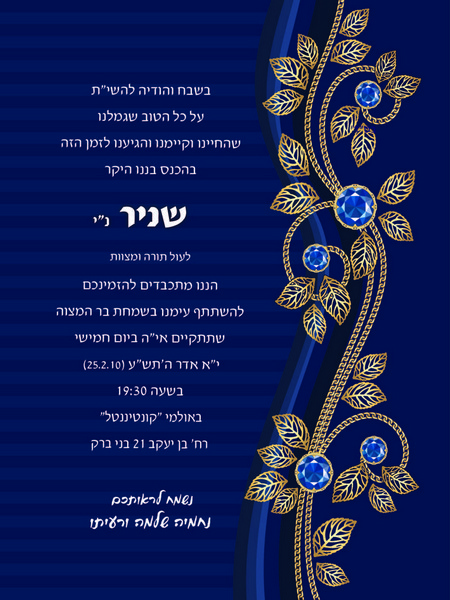 בשבח והודיה להשי"ת
על כל הטוב שגמלנו
שהחיינו וקיימנו והגיענו לזמן הזה
בהכנס בננו היקר
שניר נ"י
לעול תורה ומצוות
הננו מתכבדים להזמינכם
להשתתף עימנו בשמחת בר המצוה
שתתקיים אי"ה ביום חמישי
י"א אדר ה'תש"ע (25.2.10)
בשעה 19:30
באולמי "קונטיננטל"
רח' בן יעקב 21 בני ברק
נשמח לראותכם
נחמיה שלמה ורעיתו